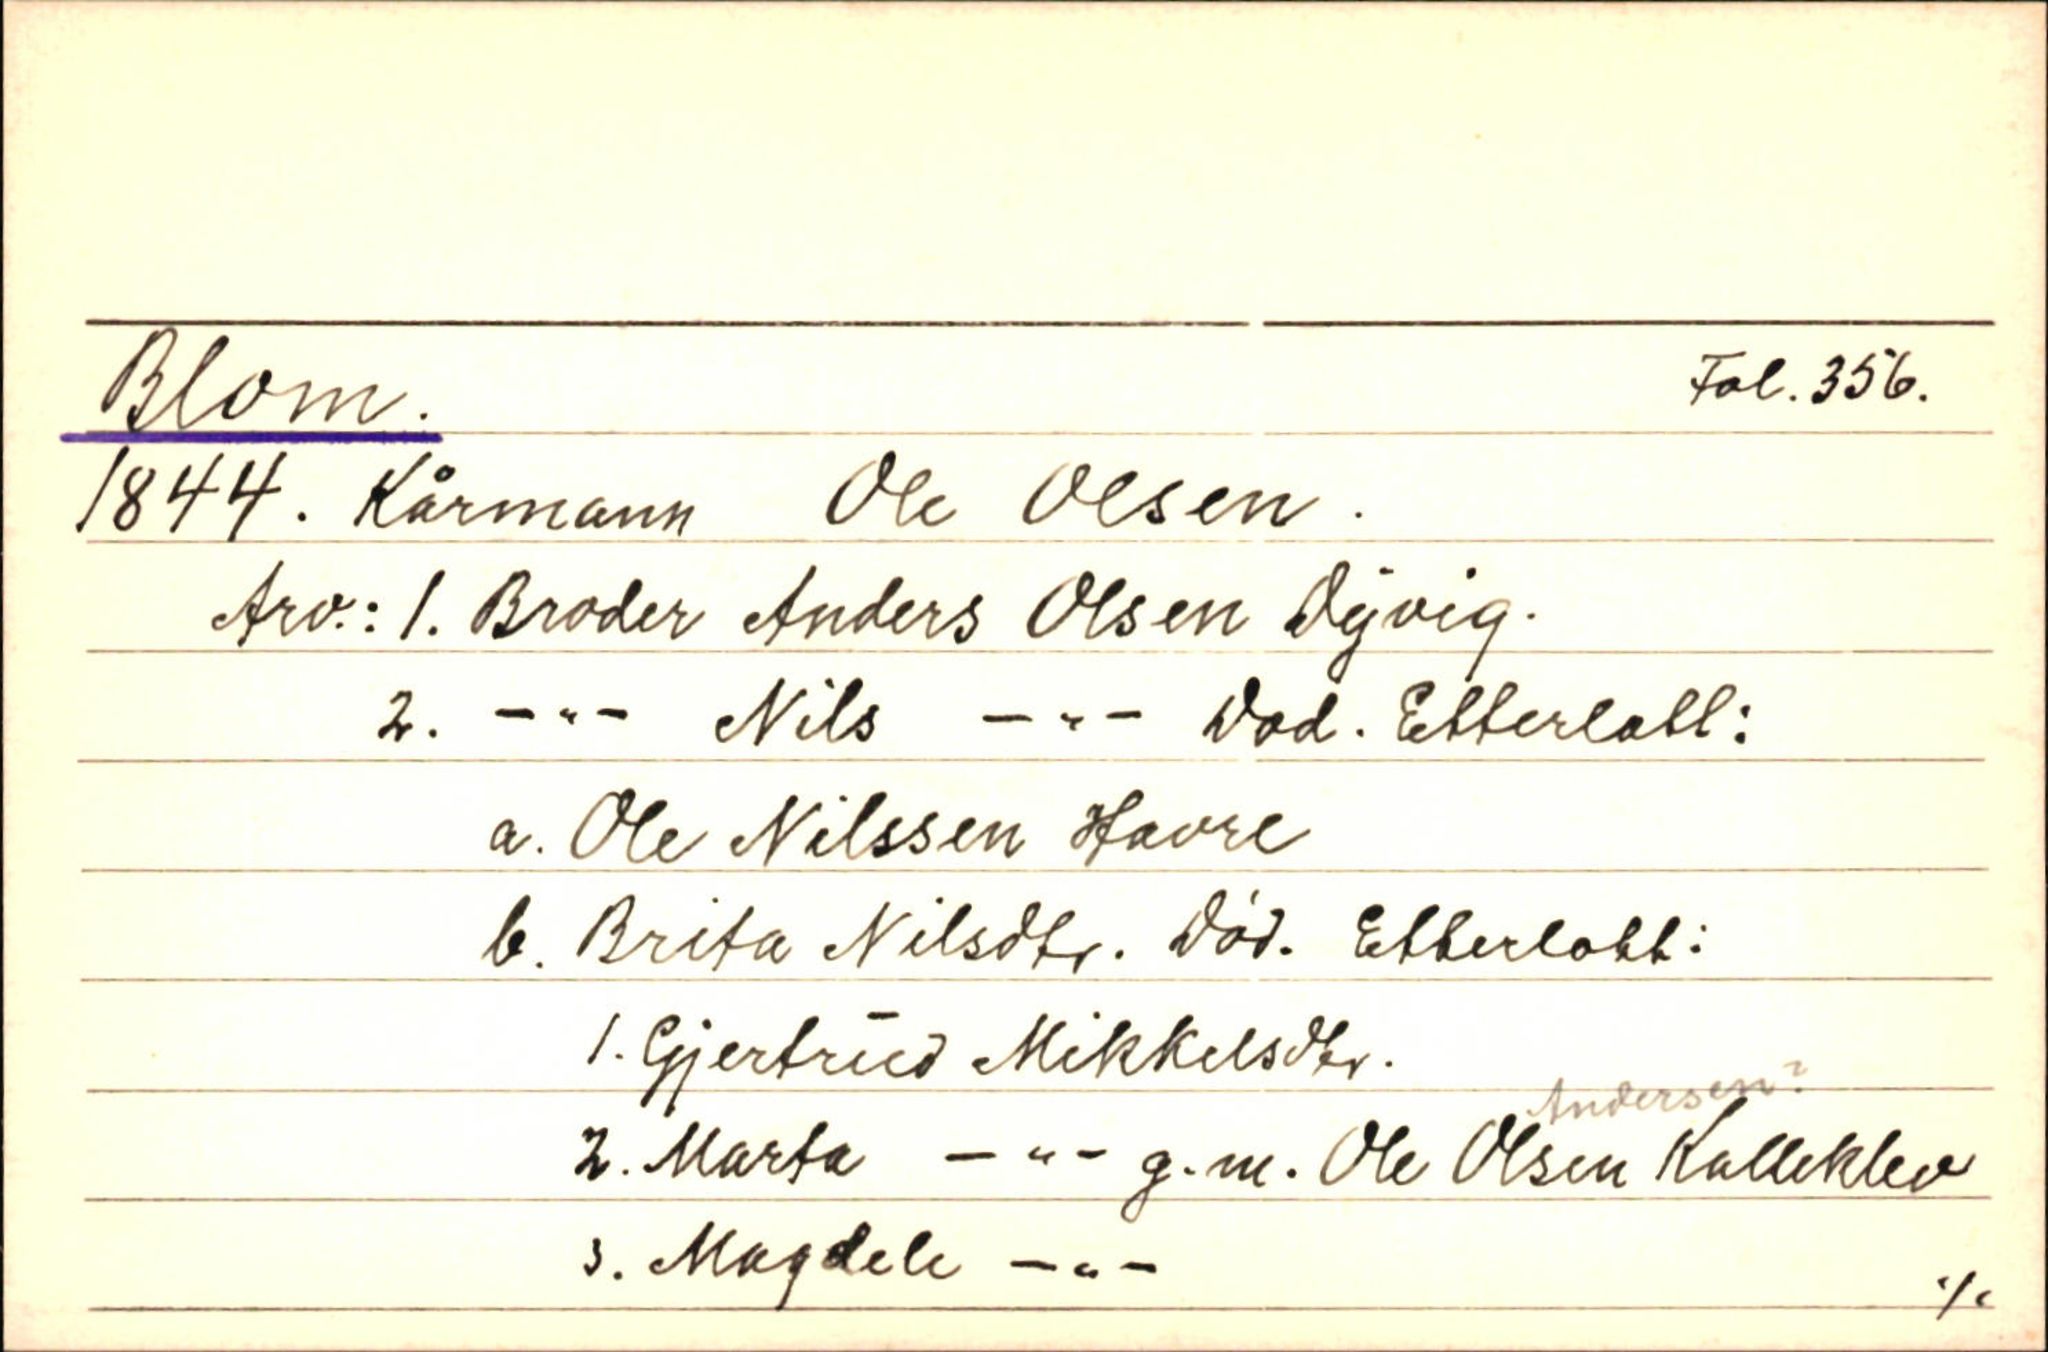 Blom. Fol. 356.
1844. Kårmann Ole Olsen.
Arv.: 1. Broder Anders Olsen Dyvig.
2. —"— Nils —"— Död. Etterlatt:
a. Ole Nilssen Havre
b. Brita Nilsdtr. Död. Etterlatt:
1. Gjertrud Mikkelsdtr.
Andersen?
2. Marta —"— g.m. Ole Olsen Kalleklev
3. Magdele —"—
./.